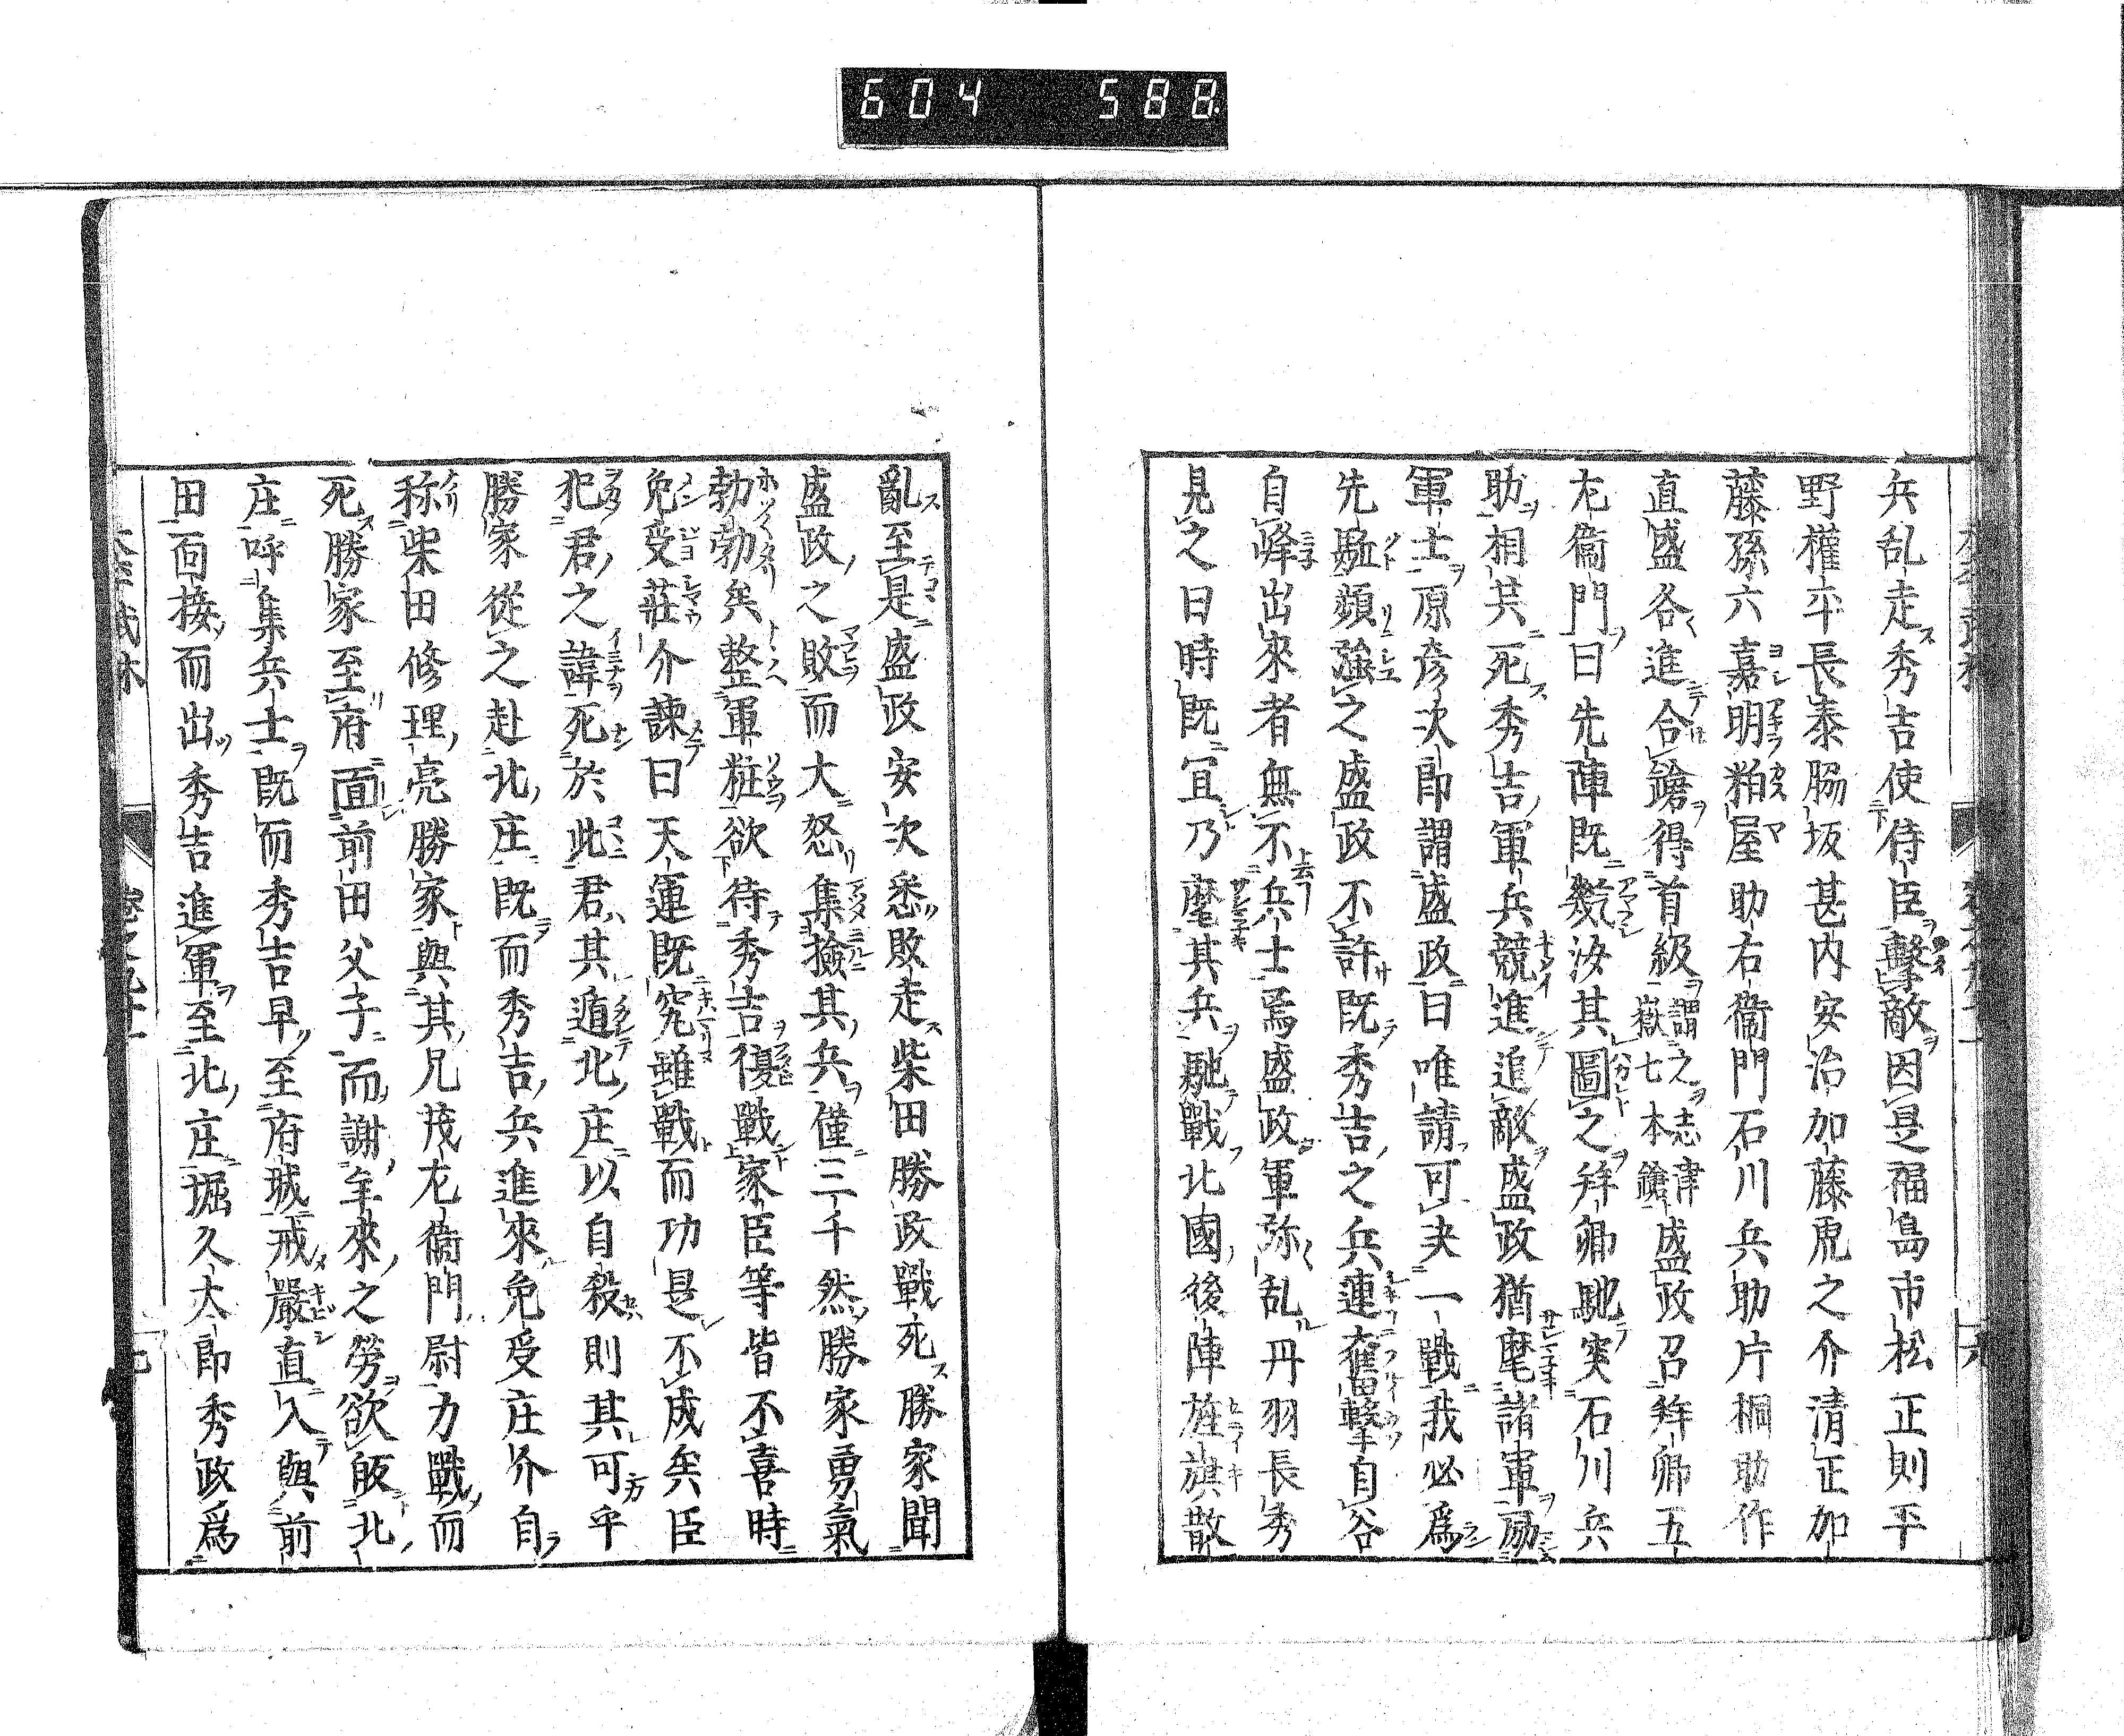 604 588
兵乱走秀吉使侍臣擊敵因是福島市松正則平
野權平長泰脇坂甚内安治加藤虎之介清正加
藤孫六嘉明粕屋助右衞門石川兵助片桐助作
直盛各進合鎗得首級謂之志津嶽七本鎗盛政召拜郷五
左衞門曰先陣既幾汝其圖之拜郷馳突石川兵
助相共死秀吉軍兵競進追敵盛政猶麾諸軍励
軍士原彦次郎謂盛政曰唯請可決一戰我必爲
先驅頻強之盛政不許既秀吉之兵連奮擊自谷
自峰出來者無不兵士焉盛政軍弥乱丹羽長秀
見之曰時既宜乃麾其兵馳戰北國後陣旌旗散
亂至是盛政安次悉敗走柴田勝政戰死勝家聞
盛政之敗而大怒集撿其兵僅三千然勝家勇氣
勃勃矣整軍粧欲待秀吉復戰家臣等皆不喜時
免受莊介諫曰天運既究雖戰而功是不成矣臣
犯君之諱死於此君其遁北庄以自殺則其可乎
勝家從之赴北庄既而秀吉兵進來免受庄介自
称柴田修理亮勝家與其兄茂左衞門尉力戰而
死勝家至府面前田父子而謝年來之勞欲皈北
庄呼集兵士既而秀吉早至府城戒嚴直入與前
田面接而出秀吉進軍至北庄堀久太郎秀政爲